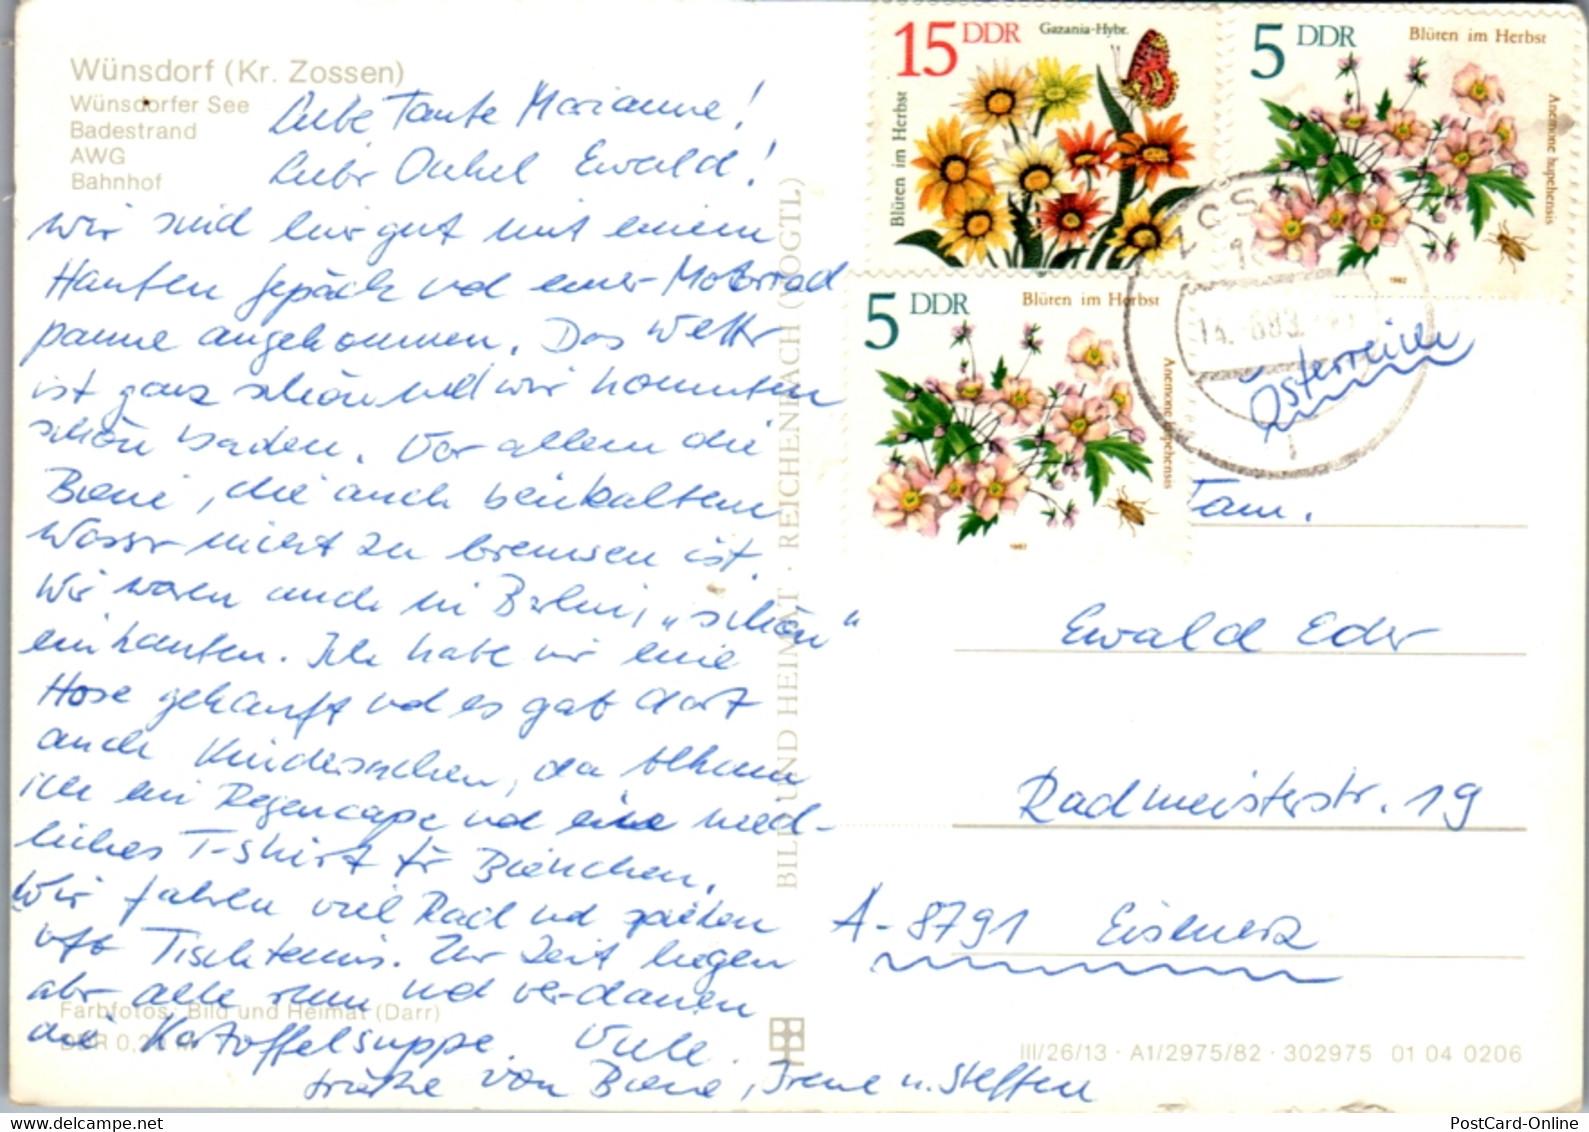 Wünsdorf (Kr. Zossen)
Wünsdorfer See
Badestrand
AWG
Bahnhof
Liebe Tante Marianne!
Lieber Onkel Ewald!
Wir sind hier gut mit einem
Haufen Gepäck und einer Motorrad
panne angekommen. Das Wetter
ist ganz schön und wir konnten
schön baden. Vor allem die
Biene, die auch bei kaltem
Wasser nicht zu bremsen ist.
Wir waren auch in Berlin, „schön"
einkaufen. Ich habe mir eine
Hose gekauft und es gab dort
auch Kindersachen, da bekam
ich ein Regencape und eine nied-
liches T-Shirt für Bienchen.
Wir fahren viel Rad und spielen
oft Tischtennis. Zur Zeit liegen
aber alle rum und verdauen
die Kartoffelsuppe. Viele
Grüße von Biene, Irene u. Steffen
Farbfotos: Bild und Heimat (Darr)
DDR 0,20 M
BILD UND HEIMAT · REICHENBACH (VOGTL)
15 DDR Gazania-Hybr.
Blüten im Herbst
5 DDR Blüten im Herbst
Anemone hupehensis
1982
5 DDR Blüten im Herbst
Anemone hupehensis
1982
ZOSS
14.-683.
Österreich
Fam.
Ewald Eder
Radmeisterstr. 19
A-8791 Eisenerz
III/26/13 · A1/2975/82 · 302975 01 04 0206
PostCard-Online